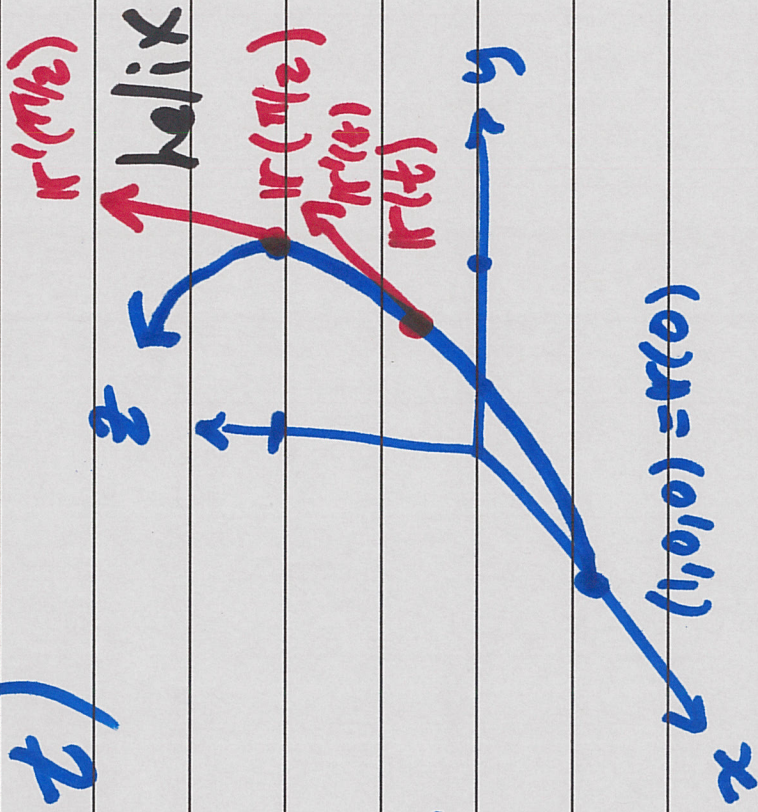 𝕣'(π/2)
z
helix
𝕣(π/2)
𝕣'(t)
𝕣(t)
y
(1,0,0) = 𝕣(0)
x